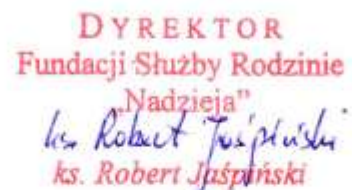 DYREKTOR
Fundacji Służby Rodzinie
„Nadzieja”
ks. Robert Jaśpiński
ks. Robert Jaśpiński